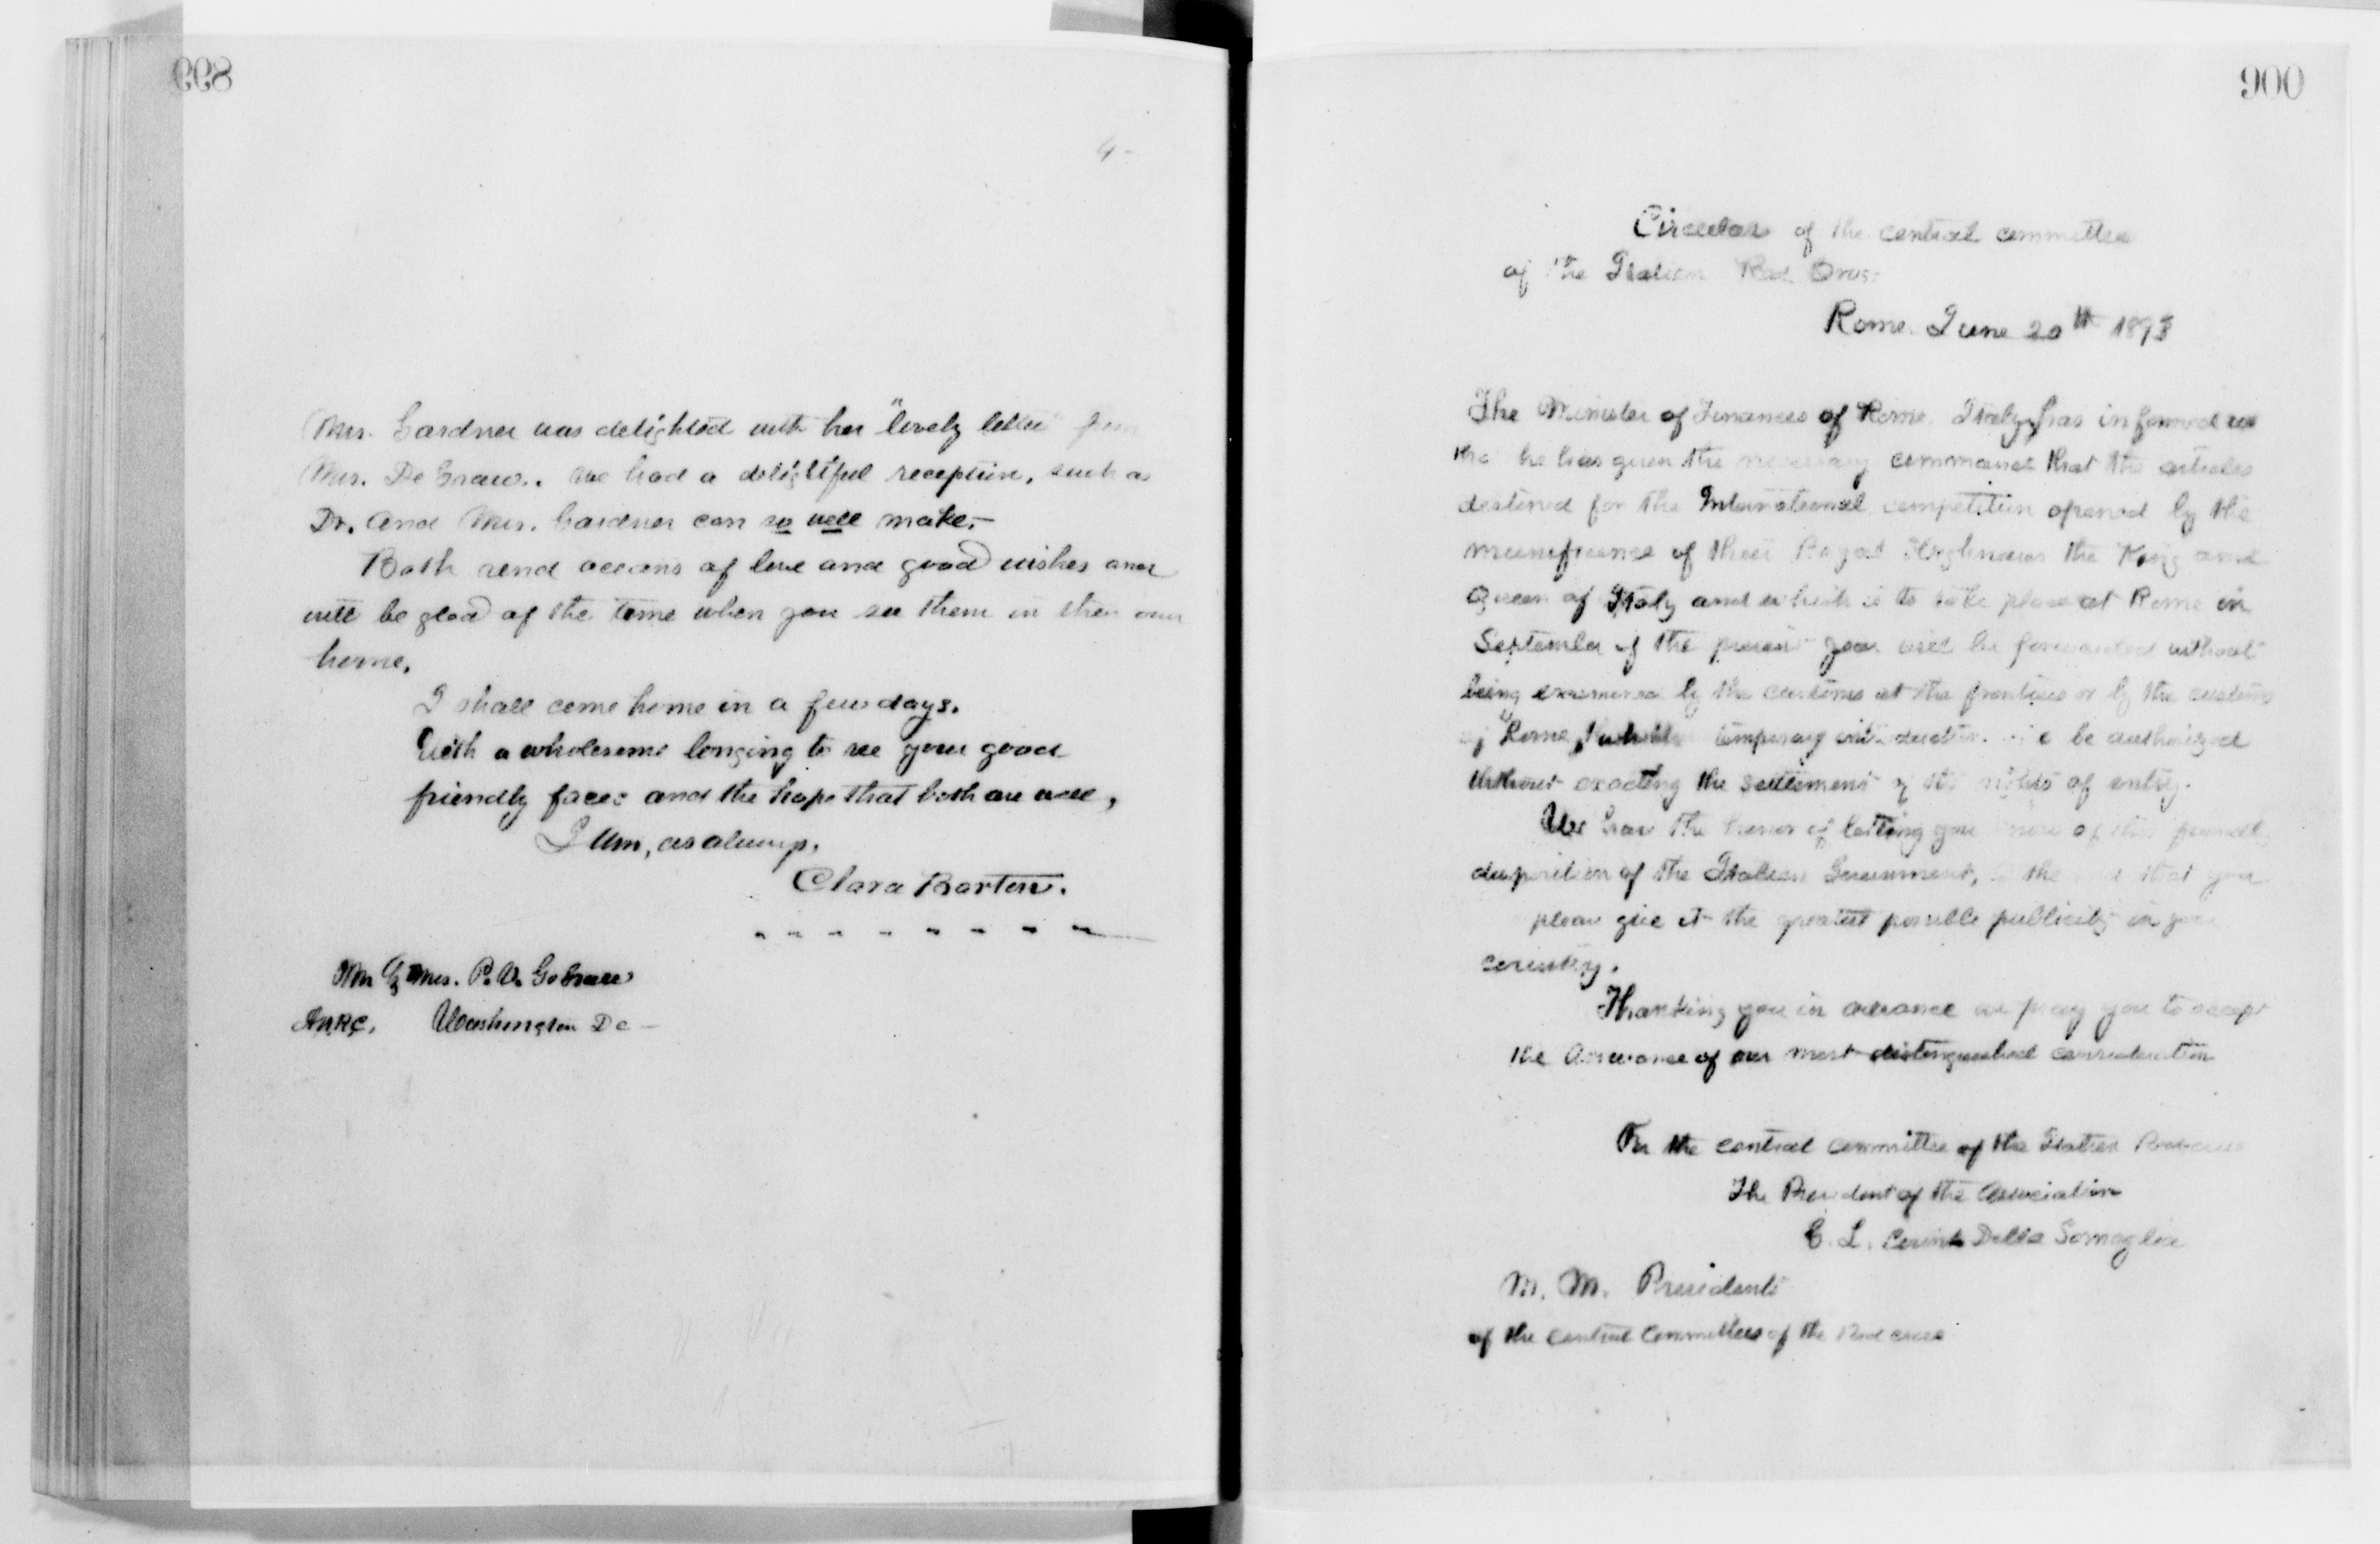 899
4-
Mrs. Gardner was delighted with her "lovely letter" from
Mrs. De Graw. We had a delightful reception, such as
Dr. and Mrs. Gardner can so well make.-
Both send oceans of love and good wishes and
will be glad of the time when you see them in their own
home.
I shall come home in a few days.
With a wholesome longing to see your good
friendly faces and the hope that both are well,
I am, as always,
Clara Barton.
Mr & Mrs. P. V. De Graw
A.N.R.C. Washington D C -
900
Circular of the central committee
of the Italian Red Cross
Rome. June 20th 1893
The Minister of Finances of Rome Italy, has informed us
that he has given the necessary command that the articles
destined for the International competition opened by the
munificence of their Royal Highnesses the King and
Queen of Italy and which is to take place at Rome in
September of the present year will be forwarded without
being examined by the customs at the frontiers or by the customs
of Rome, temporary introduction be authorized
without exacting the settlement of the rights of entry.
We have the honor of letting you know of this
disposition of the Italian Government, the that you
please give it the greatest possible publicity in your
country.
Thanking you in advance we pray you to accept
the assurance of our most distinguished consideration
For the central committee of the Italian Red Cross
The President of the Association
C. L. Count Della Somaglia
M. M. Presidents
of the Central Committees of the Red Cross